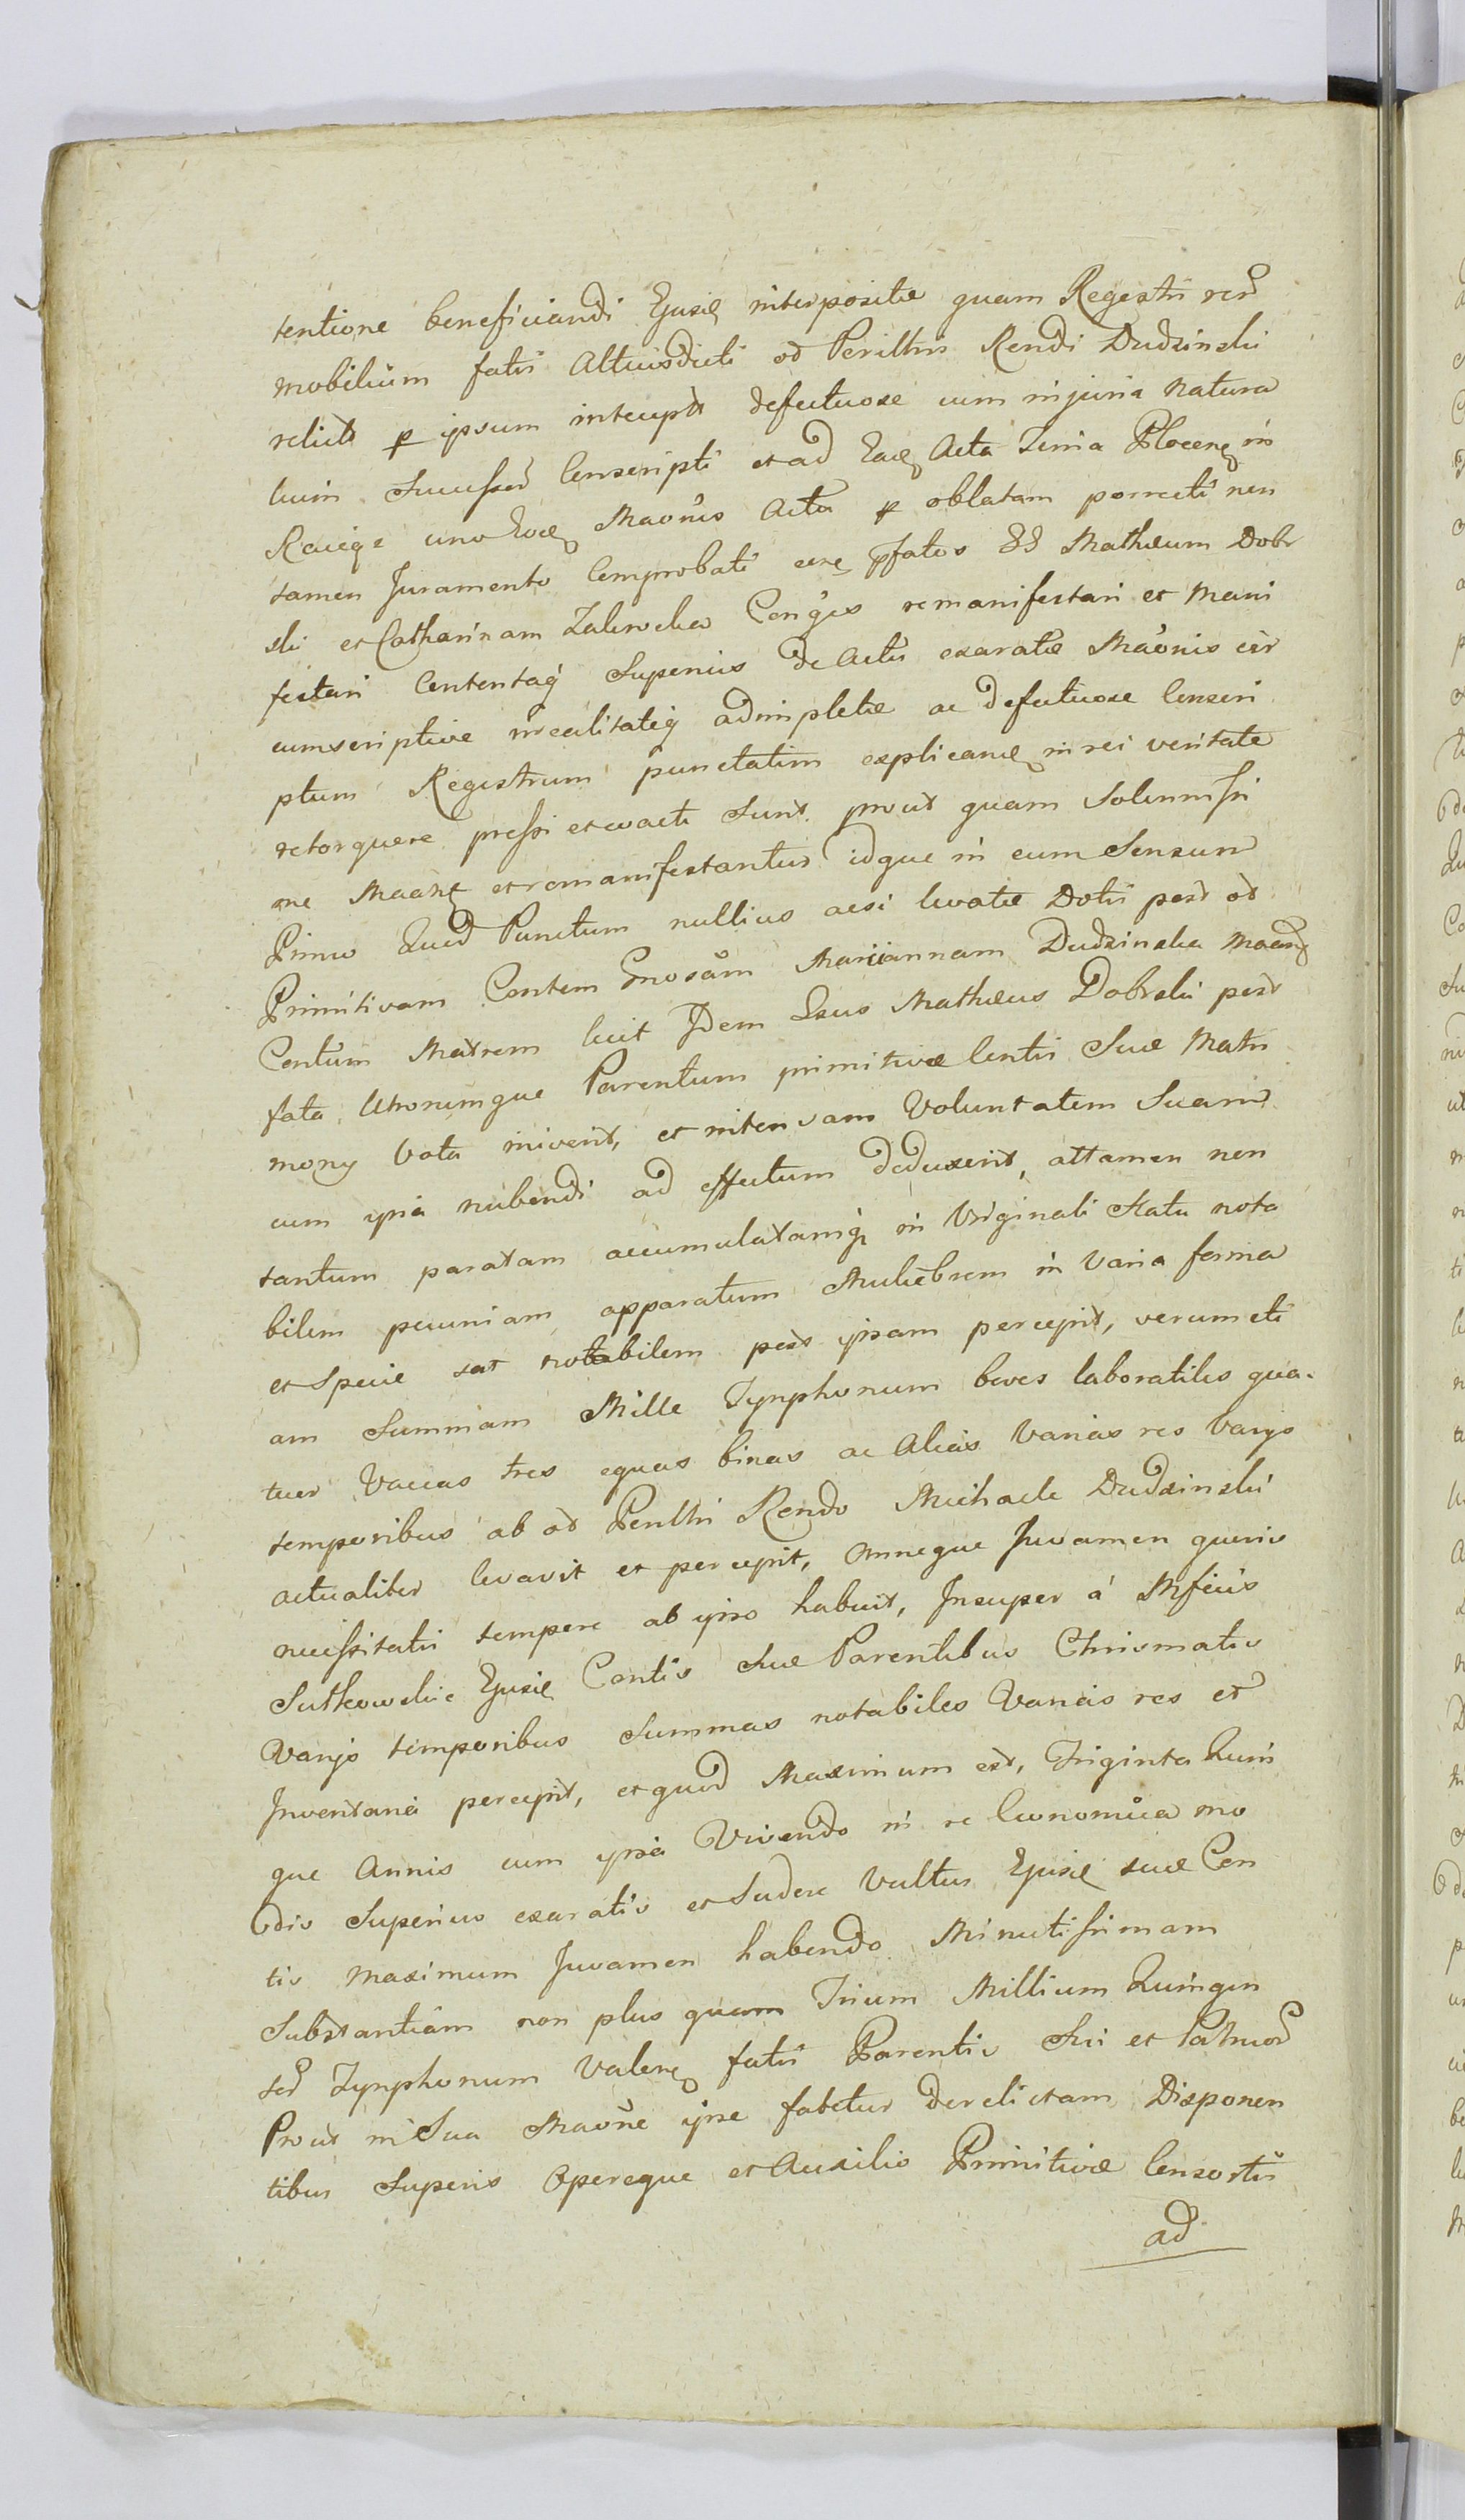 tentione beneficiandi Ejusd interpositæ quam Regestri rer
mobilium fatis Altiusdicti od Perillris Rendi Dudzinski
relict p ipsum intcept defectuose cum injuria natura
lium Successor Conscripti et ad Eadē Acta Terria Plocenē in
Raciąż uno Eodē Maonis Actu p oblatam porrecti non
tamen Juramento Comprobati eorē pfatos GG Mathæum Dobr
ski et Catharinam Zalewska Conges remanifestari et Mani
festari Contentaq Superius de Actu exaratæ Maonis cir
cumscriptive in realitateq adimpletæ ac defectuose Conscri
ptum Regestrum punctatim explicandē in rei veritate
retorquere pressi et coacti Sunt. prout quam Solennissi
me Maant et remanifestantur idque in eum Sensum
Primo Quod Punctum nullius acsi levatæ Dotis post od
Primitivam Contem Gnosam Mariannam Dudzinska Maandē
Contum Matrem licet Idem Gsus Mathæus Dobrski post
fata Utrorumque Parentum primitivæ Contis Suæ Matri
mony Vota iniverit, et intensam Voluntatem Suam
cum ipsa nubendi ad effectum deduxerit, attamen non
tantum paratam accumulatamq in Originali Statu nota
bilem pecuniam apparatum Muliebrem in Varia forma
et Specie sat notabilem post ipsam percepit, verum eti
am Summam Mille Tynphonum boves laboratiles qua-
tuor Vaccas tres equas binas ac Alias Varias res Varys
temporibus ab od Perillri Rendo Michaele Dudzinski
actualiter levavit et percepit, Omneque Juvamen quovis
necessitatis tempore ab ipso habuit, Insuper á Mficis
Sutkowskie Ejusd Contis Suæ Parentibus Chrismatis
Varys temporibus Summas notabiles Varias res et
Inventaria percepit, et quod Maximum est, Triginta Quin
que Annis cum ipsa Vivendo in re Oeconomica mo
dis Superius exaratis et Sudore Vultus Ejusd suæ Con
tis Maximum Juvamen habendo Minutissimam
Substantiam non plus quam Trium Millium Quingen
tor Tynphonum Valorē fatis Parentis Sui et Patruor
Prout in Sua Maone ipse fatetur derelictam Disponen
tibus Superis Opereque et Auxilio Primitivæ Consortis
ad